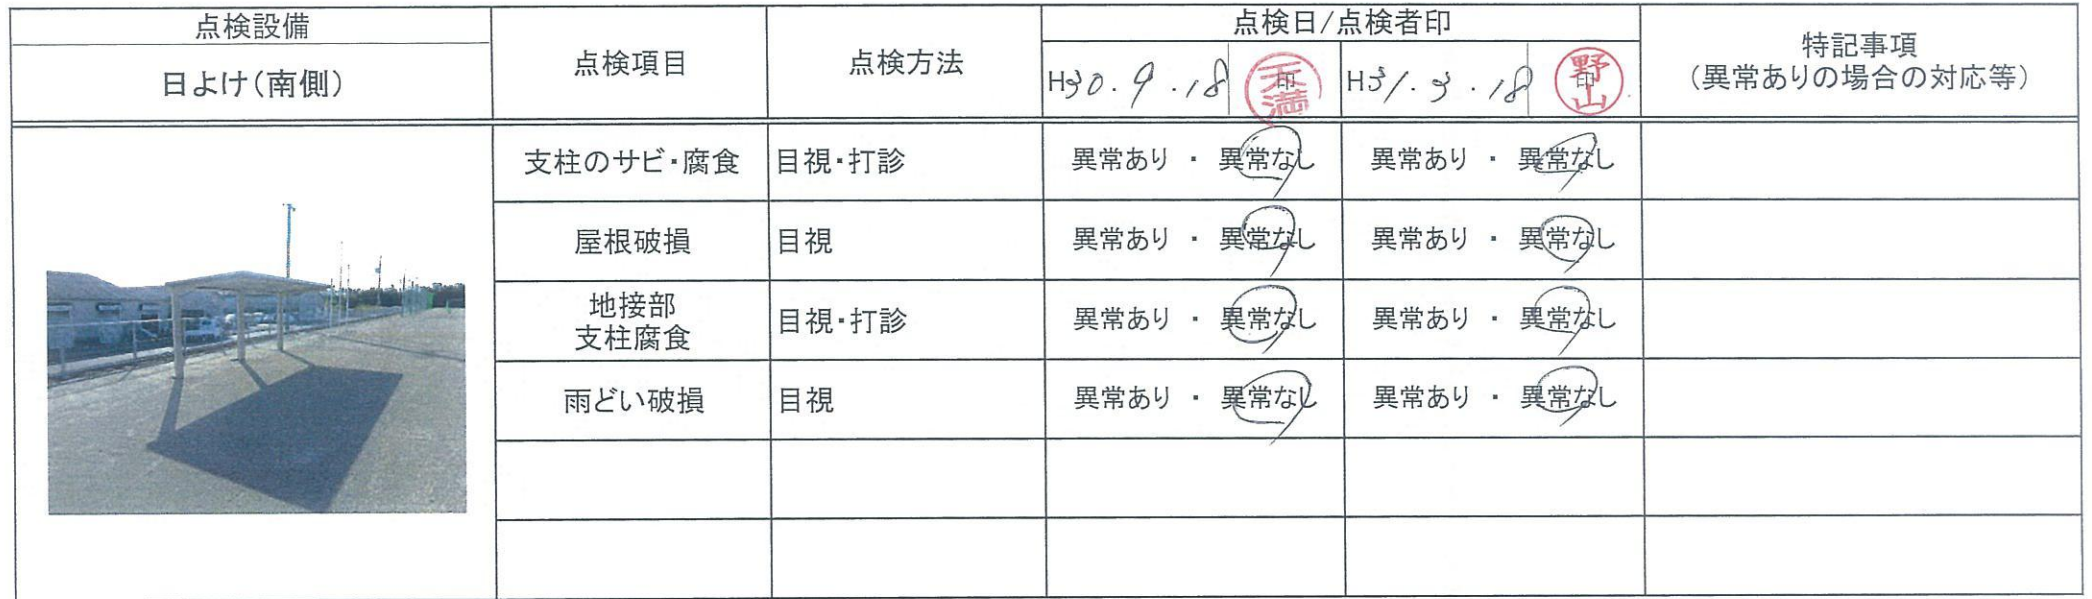 点検設備
点検項目
点検方法
点検日/点検者印
特記事項
(異常ありの場合の対応等)
日よけ(南側)
H30.9.18 印 天満
H31.3.18 印 野山
支柱のサビ・腐食 目視・打診 異常あり ・ 異常なし 異常あり ・ 異常なし
屋根破損 目視 異常あり ・ 異常なし 異常あり ・ 異常なし
地接部
支柱腐食 目視・打診 異常あり ・ 異常なし 異常あり ・ 異常なし
雨どい破損 目視 異常あり ・ 異常なし 異常あり ・ 異常なし